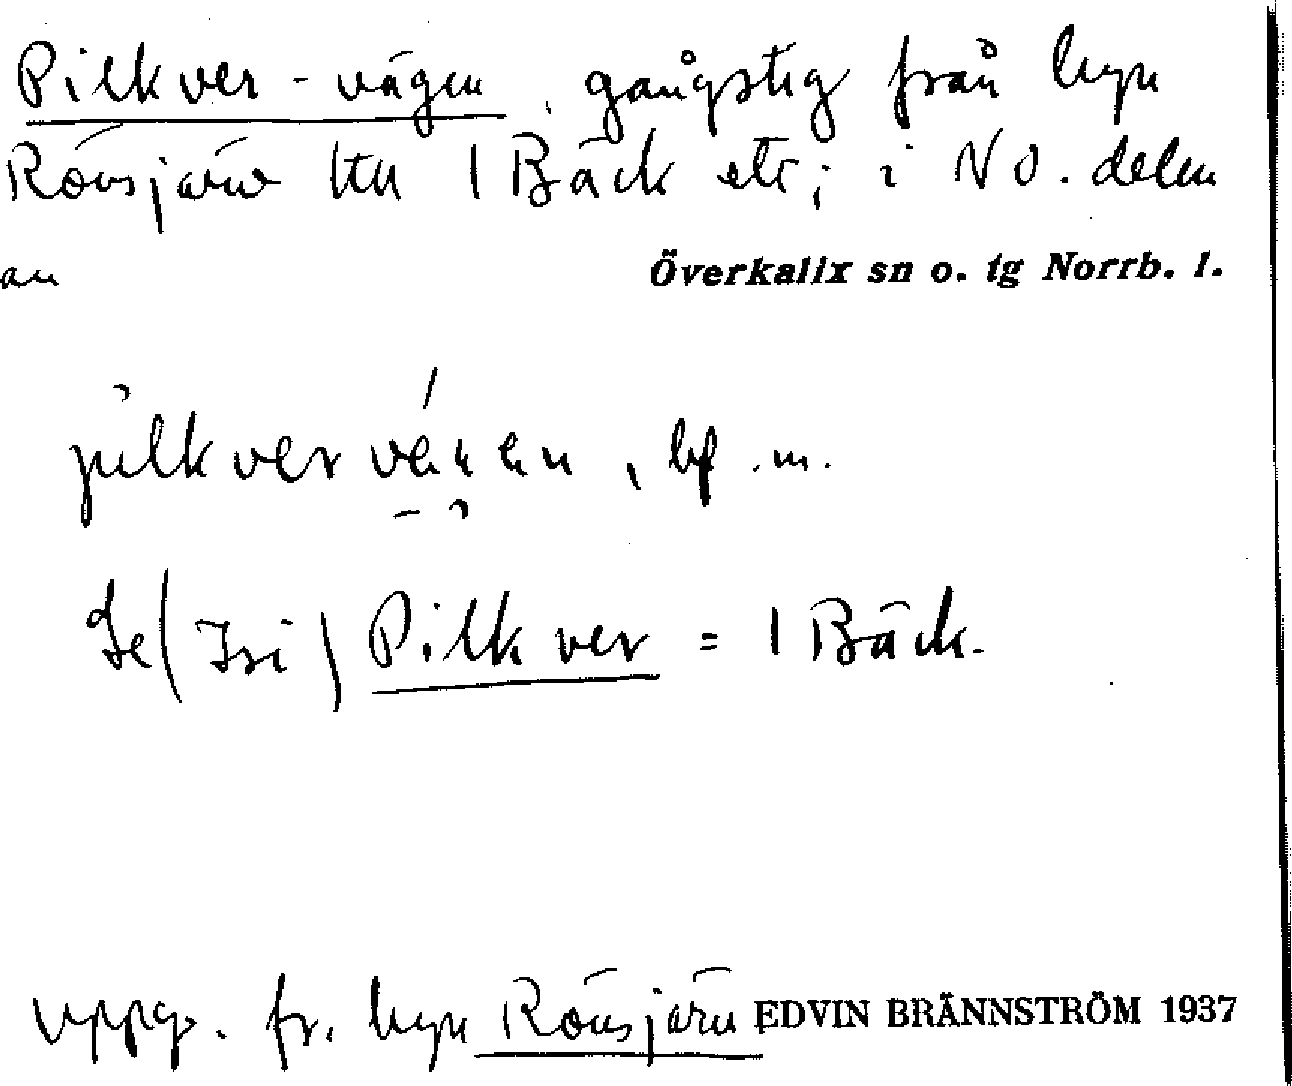 Pilkver-vägen, gångstig från byn
Rönsjärv till 1 Bäck etc; i NO. delen
av
Överkalix sn o. tg Norrb. l.
pilkver , bf. m.
Se ( ) Pilkver = 1 Bäck.
uppg. fr. byn Rönsjärv EDVIN BRÄNNSTRÖM 1937